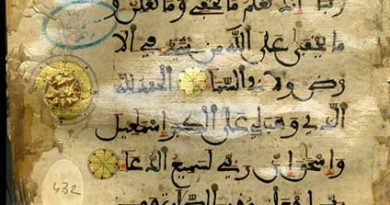 ربنا انك تعلم ما نخفي وما نعلن و
ما يخفى على الله من شي في الا
رض ولا في السما الحمد لله
الذي وهب لي على الكبر اسمعيل
واسحق ان ربي لسميع الدعا
432